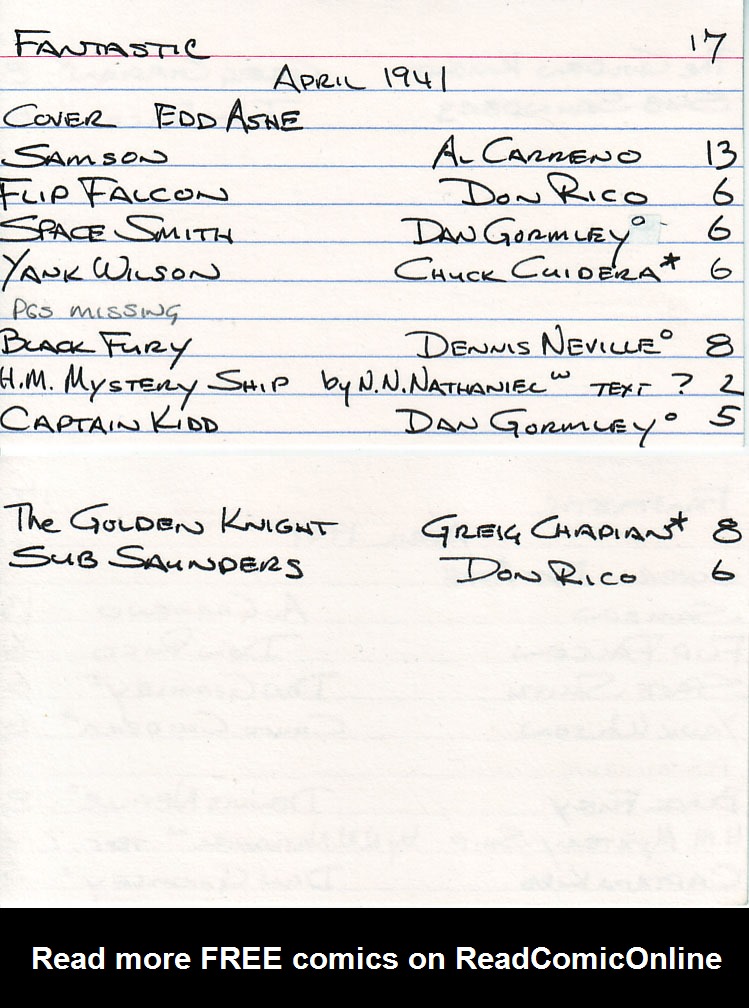 FANTASTIC 17
APRIL 1941
COVER EDD ASHE
SAMSON AL CARRENO 13
FLIP FALCON DON RICO 6
SPACE SMITH DAN GORMLEY° 6
YANK WILSON CHUCK CUIDERA* 6
PGS MISSING
BLACK FURY DENNIS NEVILLE° 8
H.M. MYSTERY SHIP by N.N. NATHANIEL ω TEXT ? 2
CAPTAIN KIDD DAN GORMLEY° 5
The GOLDEN KNIGHT GREIG CHAPIAN* 8
SUB SAUNDERS DON RICO 6
Read more FREE comics on ReadComicOnline